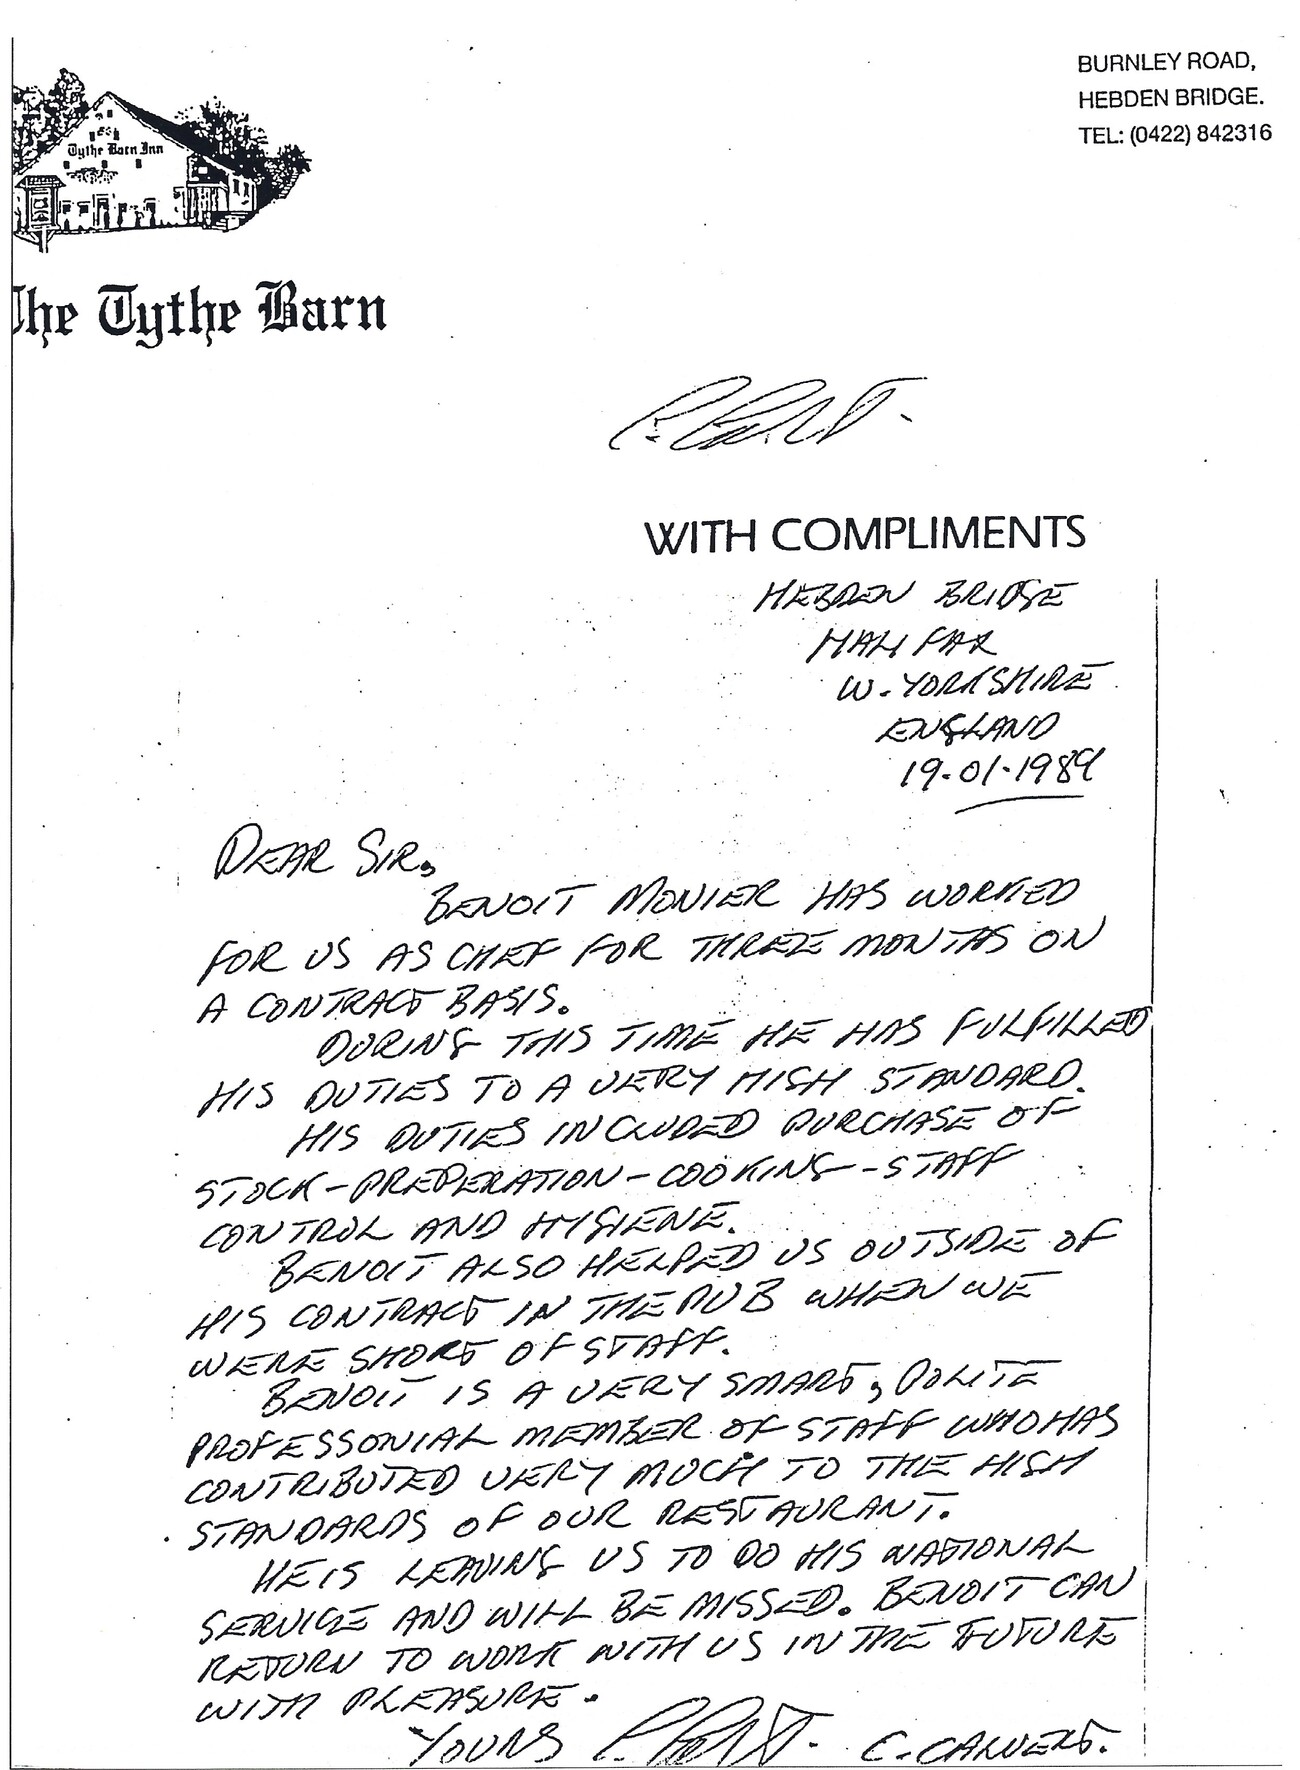 BURNLEY ROAD,
HEBDEN BRIDGE.
TEL: (0422) 842316
Tythe Barn Inn
The Tythe Barn
WITH COMPLIMENTS
HEBDEN BRIDGE
HALIFAX
W. YORKSHIRE
ENGLAND
19-01-1989
DEAR SIR,
BENOIT MONIER HAS WORKED
FOR US AS CHEF FOR THREE MONTHS ON
A CONTRACT BASIS.
DURING THIS TIME HE HAS FULFILLED
HIS DUTIES TO A VERY HIGH STANDARD.
HIS DUTIES INCLUDED PURCHASE OF
STOCK-PREPERATION-COOKING-STAFF
CONTROL AND HYGIENE.
BENOIT ALSO HELPED US OUTSIDE OF
HIS CONTRACT IN THE PUB WHEN WE
WERE SHORT OF STAFF.
BENOIT IS A VERY SMART, POLITE
PROFESSONIAL MEMBER OF STAFF WHO HAS
CONTRIBUTED VERY MUCH TO THE HIGH
STANDARDS OF OUR RESTAURANT.
HE IS LEAVING US TO DO HIS NATIONAL
SERVICE AND WILL BE MISSED. BENOIT CAN
RETURN TO WORK WITH US IN THE FUTURE
WITH PLEASURE.
YOURS C. CALVERT.